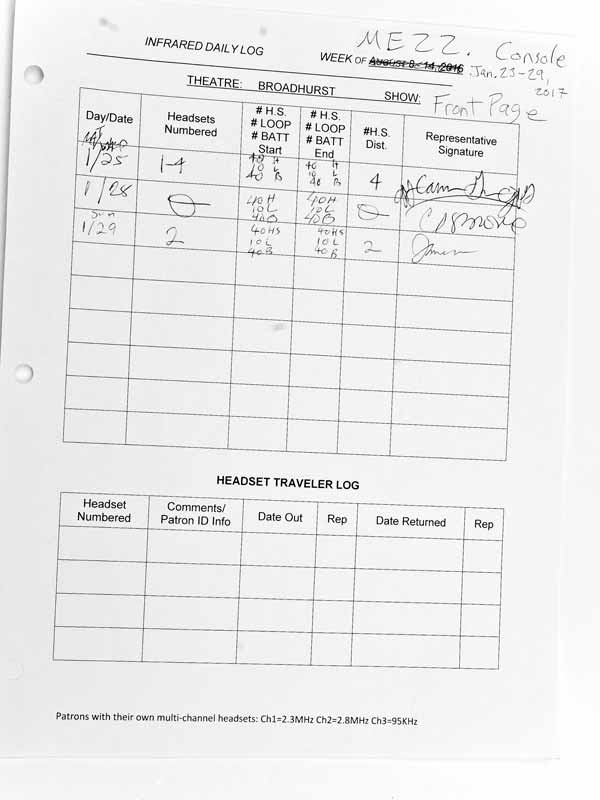 MEZZ. Console
INFRARED DAILY LOG
WEEK OF August 8 - 14, 2016 Jan. 23-29, 2017
THEATRE: BROADHURST
SHOW: Front Page
Day/Date
Headsets Numbered
# H.S. # LOOP # BATT Start
# H.S. # LOOP # BATT End
#H.S. Dist.
Representative Signature
MAT
1/25 1-4 40 H 10 L 40 B 40 H 10 L 40 B 4
1/28 0 40H 10L 40B 40H 10L 40B 0
Sun 1/29 2 40HS 10L 40B 40HS 10L 40B 2
HEADSET TRAVELER LOG
Headset Numbered
Comments/ Patron ID Info
Date Out
Rep
Date Returned
Rep
Patrons with their own multi-channel headsets: Ch1=2.3MHz Ch2=2.8MHz Ch3=95KHz